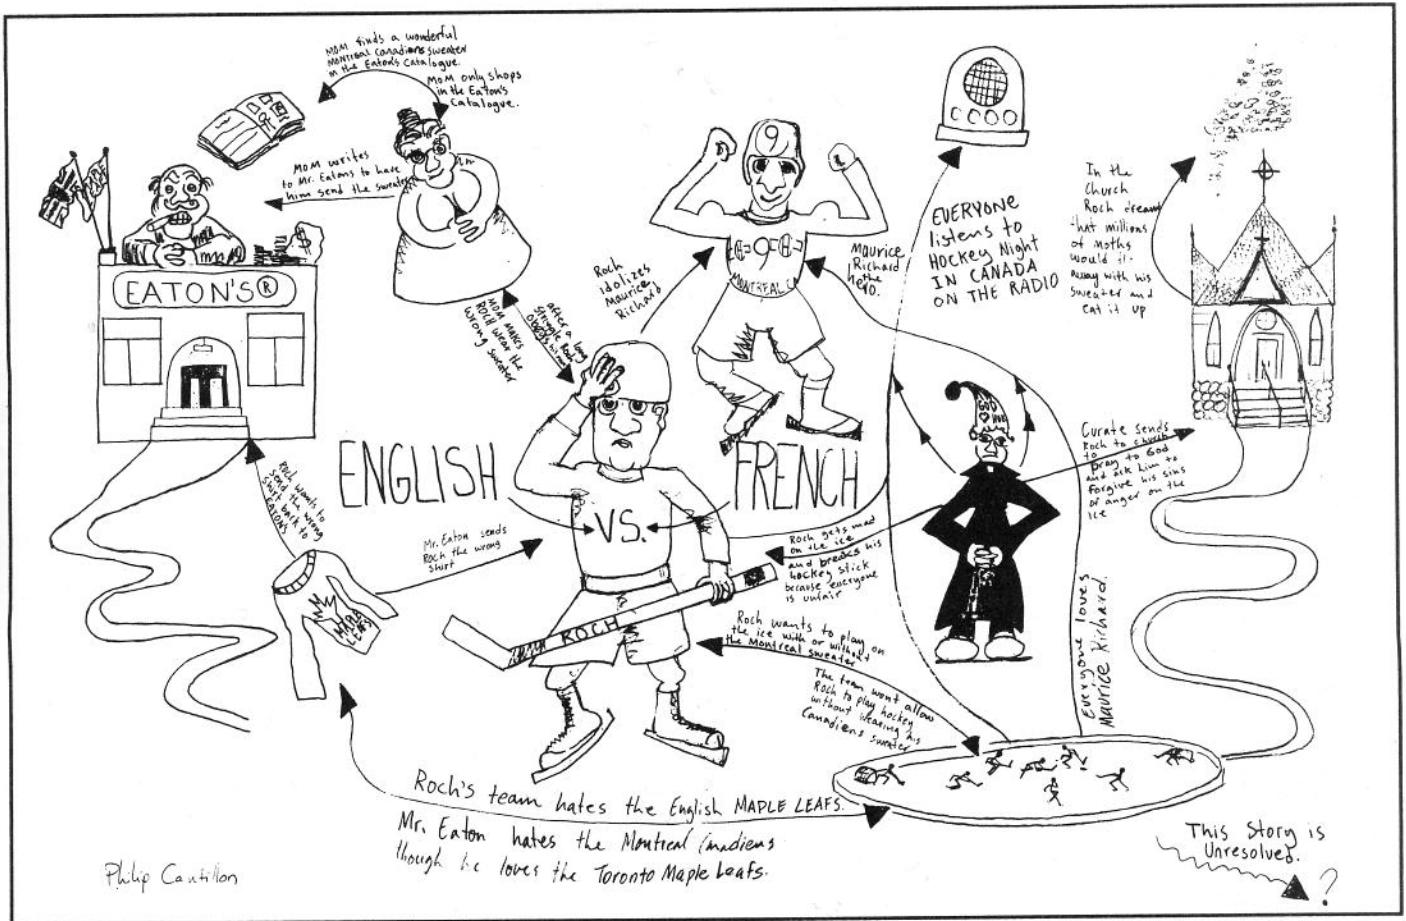 MOM finds a wonderful
MONTREAL Canadians sweater
in the Eaton's Catalogue.
MOM only shops
in the Eaton's
Catalogue.
MOM writes
to Mr. Eatons to have
him send the sweater
EATON'S®
$
MOM MAKES
ROCH wear the
wrong sweater
after a long
struggle Roch
obeys his mom
Roch
idolizes
Maurice
Richard
9
9
MONTREAL CA
Maurice
Richard
the
hero.
EVERYONE
listens to
HOCKEY NIGHT
IN CANADA
ON THE RADIO
In the
Church
Roch dreams
that millions
of moths
would fly
away with his
sweater and
eat it up
GOD
Curate sends
Roch to church
to
pray to God
and ask him to
forgive his sins
or anger on the
ice
ENGLISH
VS.
FRENCH
Roch wants to
send the wrong
shirt back to
EATONS
Mr. Eaton sends
Roch the wrong
shirt
MAPLE
LEAFS
ROCH
Roch gets mad
on the ice
and breaks his
hockey stick
because everyone
is unfair
Roch wants to play on
the ice with or without
the Montreal sweater
The team wont allow
Roch to play hockey
without wearing his
Canadiens sweater
Everyone loves
Maurice Richard.
Roch's team hates the English MAPLE LEAFS.
Mr. Eaton hates the Montreal Canadiens
though he loves the Toronto Maple Leafs.
This Story is
Unresolved.
?
Philip Cantillon